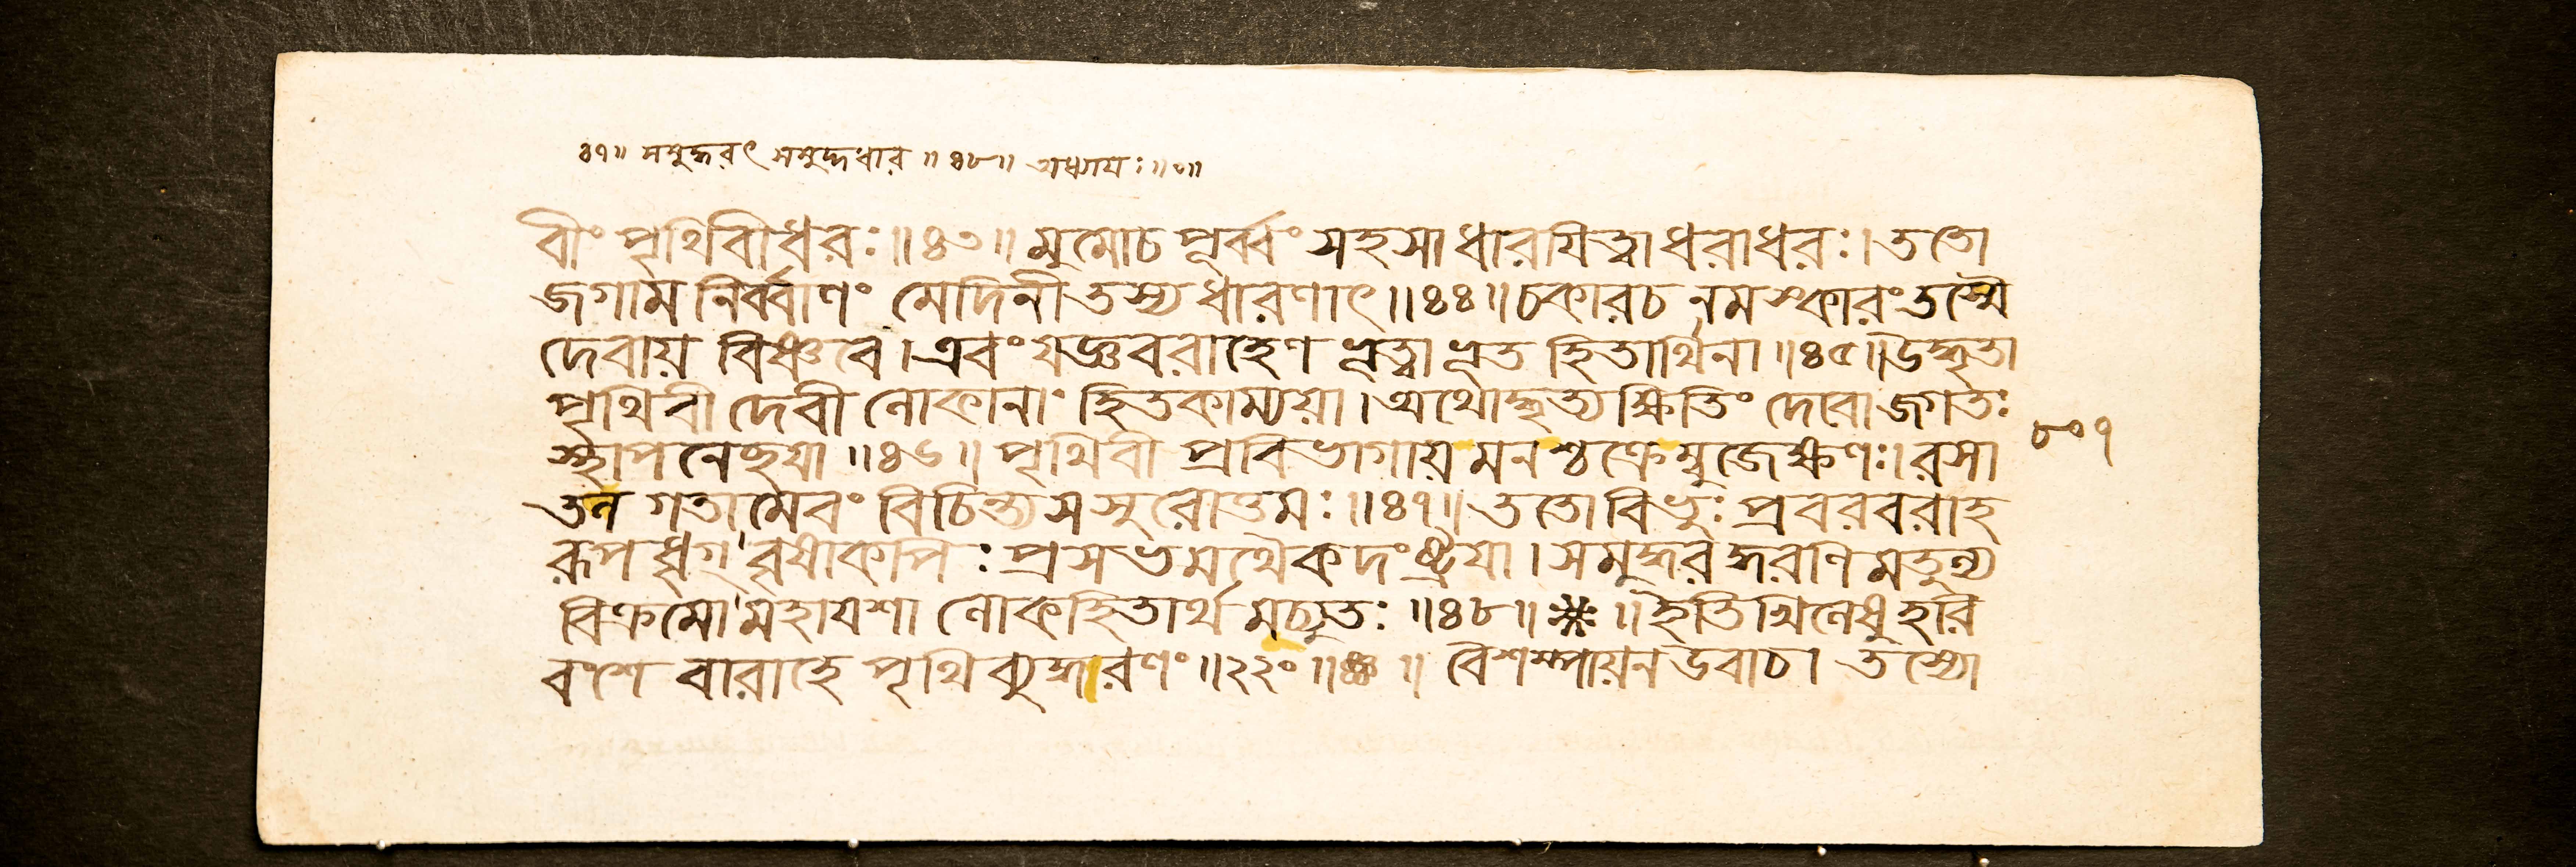 ৪৭॥ সমুদ্ধরৎ সমুদ্দধার ॥৪৮॥ অধ্যায়ঃ॥০॥
বীং পৃথিবীধরঃ॥৪৩॥ মুমোচ পূর্ব্বং সহসা ধারযিত্বা ধরাধরঃ। ততো
জগাম নির্ব্বাণং মেদিনী তস্য ধারণাৎ॥৪৪॥ চকার চ নমস্কারং তস্মৈ
দেবায় বিষ্ণবে। এবং যজ্ঞবরাহেণ ভূত্বা ভূত হিতার্থিনা॥৪৫॥ উদ্ধৃতা
পৃথিবী দেবী লোকানাং হিতকাম্যয়া। অথোদ্ধৃত্য ক্ষিতিং দেবো জগতঃ
স্থাপনেছযা॥৪৬॥ পৃথিবী প্রবিভাগায় মনশ্চক্রেম্বুজেক্ষণঃ। রসা
তল গতামেবং বিচিন্ত্য স সুরোত্তমঃ॥৪৭॥ ততো বিভুঃ প্রবরবরাহ
রূপধৃগ্ বৃষাকপিঃ প্রসভমথৈকদংষ্ট্রযা। সমুদ্ধরদ্ধরণিমতুল্য
বিক্রমো মহাযশা লোকহিতার্থমচ্যুতঃ॥৪৮॥ ॥ইতি খিলেষু হরি
বংশে বারাহে পৃথিব্যুদ্ধারণং॥২২০॥ ॥ বৈশম্পায়ন উবাচ। তস্যো
৮০৭